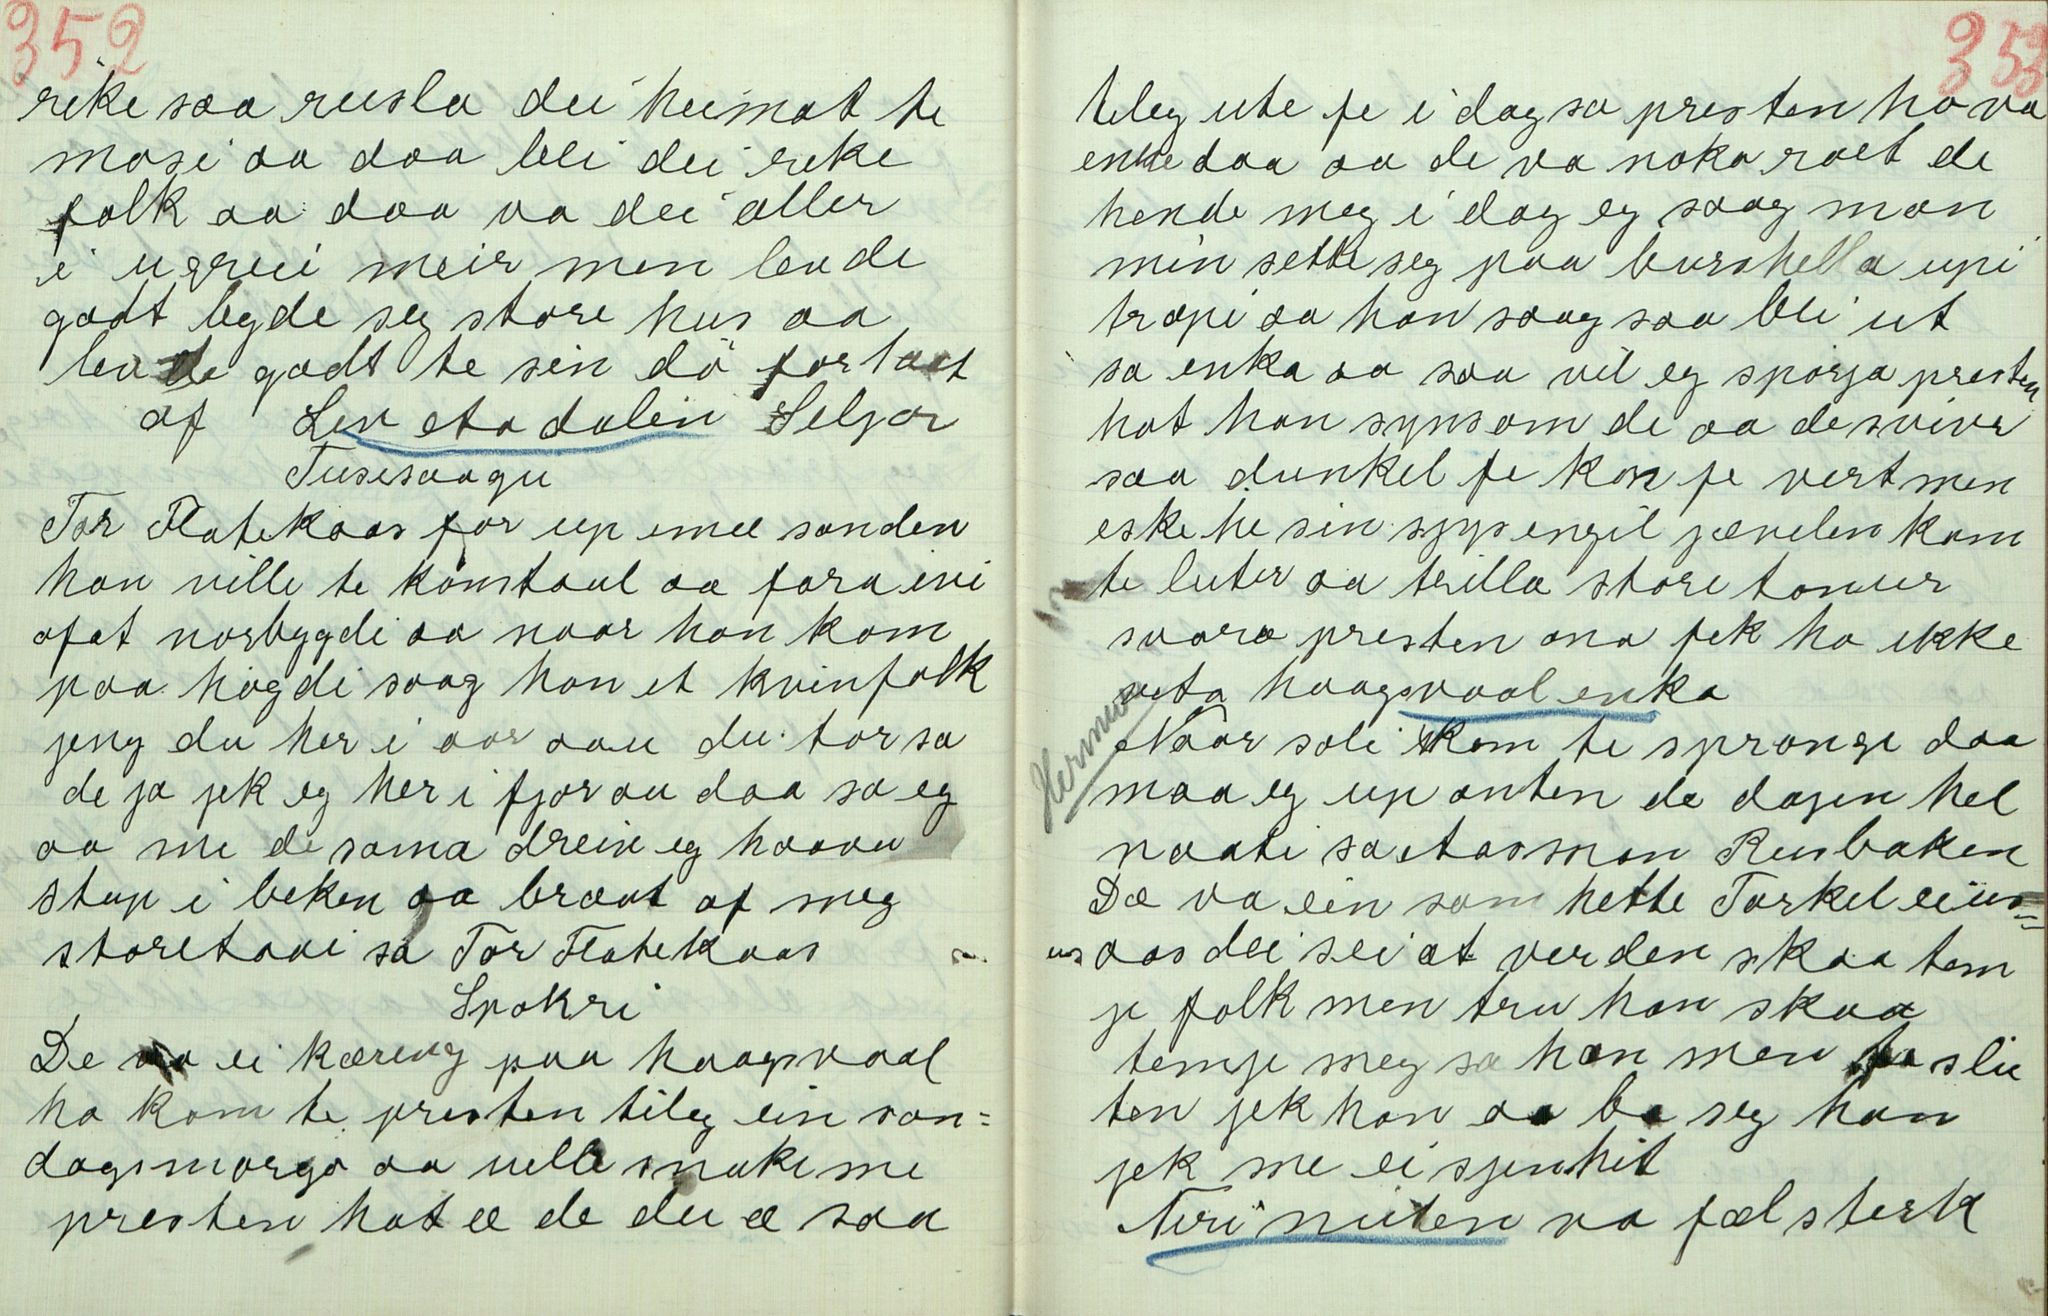 352
rike saa rusla dei heimat te
mosi aa daa blei dei rike
folk aa daa va dei aller
i ugreii meir men levde
godt bygde seg store hus aa
levde godt te sin dö fortaet
af Liv etadalen Seljor
Tusesaagu
Tor Flatekaas for up emel sanden
han ville te komtaul aa fara ivi
afat norbygdi aa naar han kom
paa högdi saag han et kvinfolk
jeng du her i aar aau du tor sa
de ja jek eg her i fjor au daa sa eg
aa me de sama drein eg haavu
stup i beken aa bravt af meg
storetaai sa Tor Flatekaas
Spokri
De va ei kæreng paa haagsvaal
ho kom te presten tileg ein son=
dagsmorgo aa velle snake me
presten hot æ de du æ saa
353
tileg ute fe i dag sa presten ho va
enke daa aa de va noka raet de
hende meg i dag eg saag man
min sette seg paa burshella upi
trapi aa han saag saa bli ut
sa enka aa saa vil eg spörja presten
hot han syns om de aa de svivr
saa dunkel fe kon fe vert men
eske he sin syps engil jævelen kom
te luter aa trilla store tonner
svara presten ana fek ho ikke
veta haagsvaal enka
Naar soli kom te spronge daa
maa eg up anten de dagen hel
naati sa etasman Rusbaken
Hermo
Dæ va ein som hette Torkel eiin=
us aas dei sei at verden skaa tem
je folk men tru han skaa
temje meg sa han men te slu
ten jek han aa ba seg han
jek me ei sjenhit
Neri nuten va fæl sterk